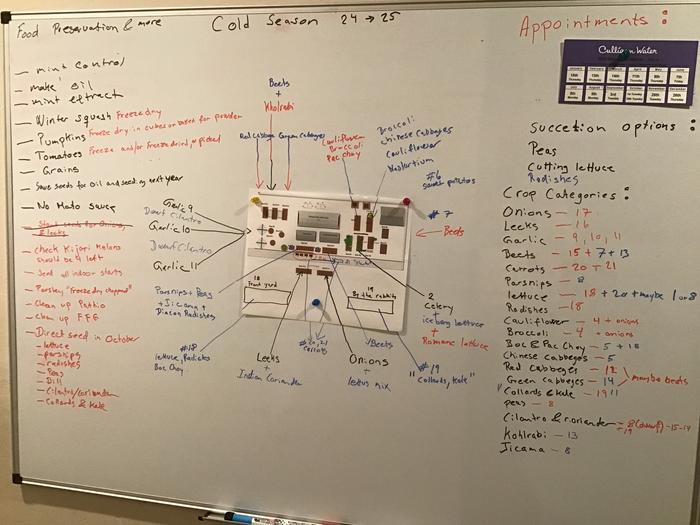 Food Preservation & more
Cold Season 24 → 25
Appointments :
Culligan Water
— mint control
— make oil
— mint extract
— Winter squash Freeze dry
— Pumpkins Freeze dry in cubes or baked for powder
— Tomatoes Freeze and/or freeze dried, or picked
— Grains
— Save seeds for Oil and seeding next year
— No Mato sauce
— check Kijori Melons
should be 4 left
— Send all indoor starts
— Parsley, "freeze dry chopped"
— Clean up Pathio
— Clean up FFG
— Direct seed in October
— lettuce
— parsnips
— radishes
— Peas
— Dill
— Cilantro/coriander
— Collards & Kale
Beets
+
Kholrabi
Red Cabbage
Green Cabbages
Cauliflower
Broccoli
Pac Choy
Broccoli
Chinese Cabbages
Cauliflower
Nastortium
#6
sweet potatos
#7
Beets
Garlic 9
Dwarf Cilantro
Garlic 10
Dwarf Cilantro
Garlic 11
Parsnips + Peas
+ Jicama +
Diacon Radishes
18
Front yard
19
By the rabbits
2
Celery
+
iceberg lettuce
+
Romane lettuce
#18
lettuce, Radishs
Boc Choy
Leeks
+
Indian Coriander
#20, 21
Carrots
Onions
+
lettus mix
Beets
#19
"Collards, kale"
Succetion options :
Peas
Cutting lettuce
Radishes
Crop Categories :
Onions — 17
Leeks — 16
Garlic — 9, 10, 11
Beets — 15 + 7 + 13
Carrots — 20 + 21
Parsnips — 8
lettuce — 18 + 20 + maybe 1 or 8
Radishes — 18
Cauliflower — 4 + onions
Broccoli — 4 + onions
Boc & Pac Choy — 5 + 18
Chinese cabbeges — 5
Red Cabbeges — 12
Green cabbeyes — 14
maybe beets
"Collards & kale — 19"
peas — 8
Cilantro & coriander — 8 (dwarf) - 15 - 17
+ 19
Kohlrabi — 13
Jicama — 8